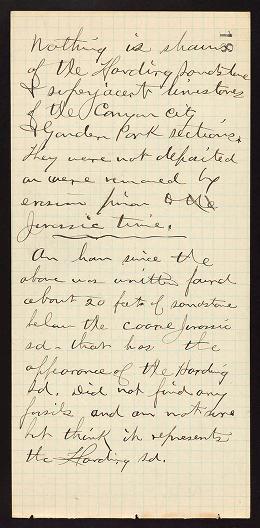 18
Nothing is shown
of the Harding sandstone
& superjacent limestones
of the Canyon City
& Garden Park sections.
They were not deposited
or were removed by
erosion prior to the
Jurassic time.
An hour since the
above was written found
about 20 feet of sandstone
below the coarse Jurassic
sd. that has the
appearance of the Harding
sd. Did not find any
fossils and am not sure
but think it represents
the Harding sd.